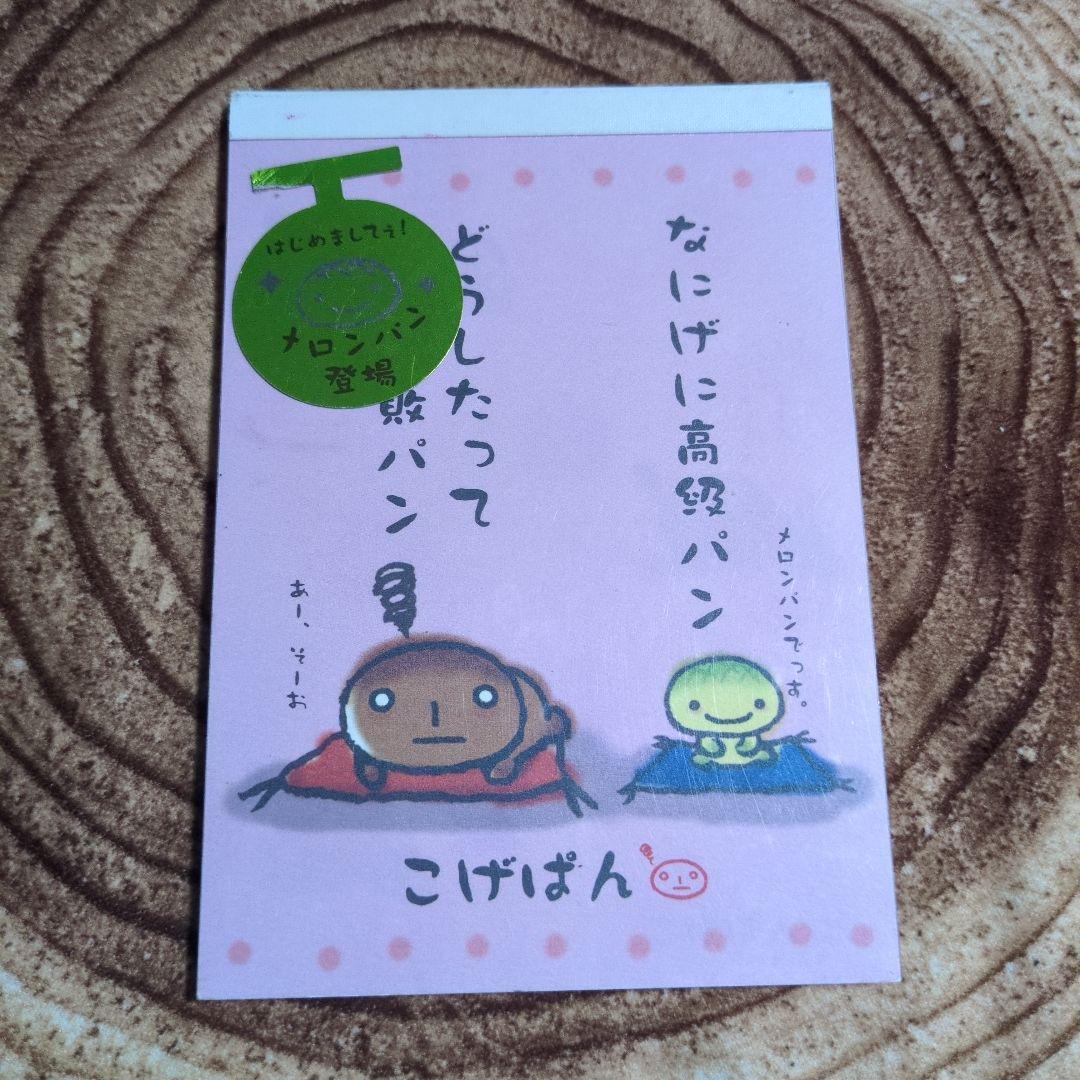 なにげに高級パン
メロンパンでっす。
どうしたって
敗パン
あー、そーお
はじめましてぇ!
メロンパン
登場
こげぱん